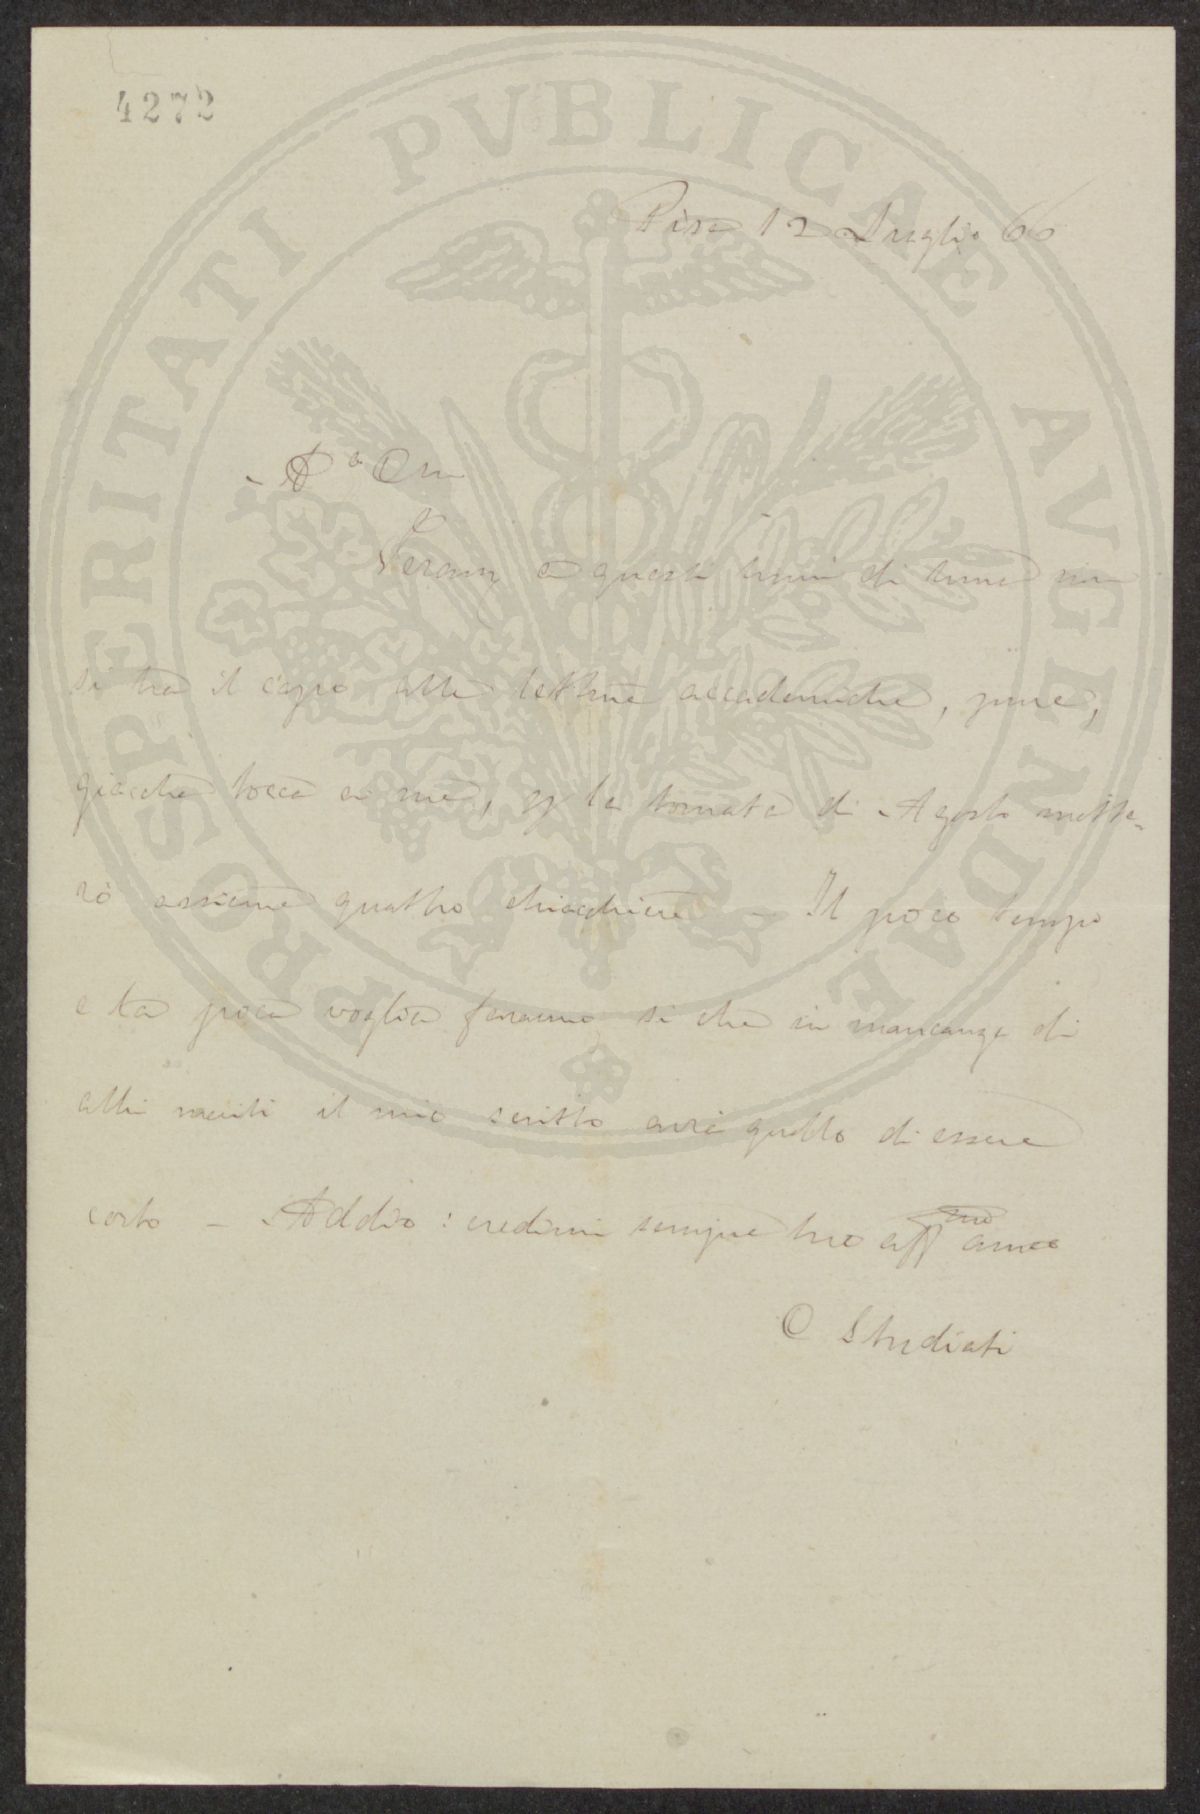 4272
PROSPERITATI PVBLICAE AVGENDAE
Pisa 12 Luglio 66
A.o
a questi lumi di luna non
si ha il capo alle letture accademiche, pure,
giacchè tocca a me, p la tornata di Agosto mette-
rò assieme quattro chiacchiere – Il poco tempo
e la poca voglia faranno si che in mancanza di
altri meriti il mio scritto avrà quello di essere
corto – Addio: credimi sempre tuo affmo amico
C Studiati